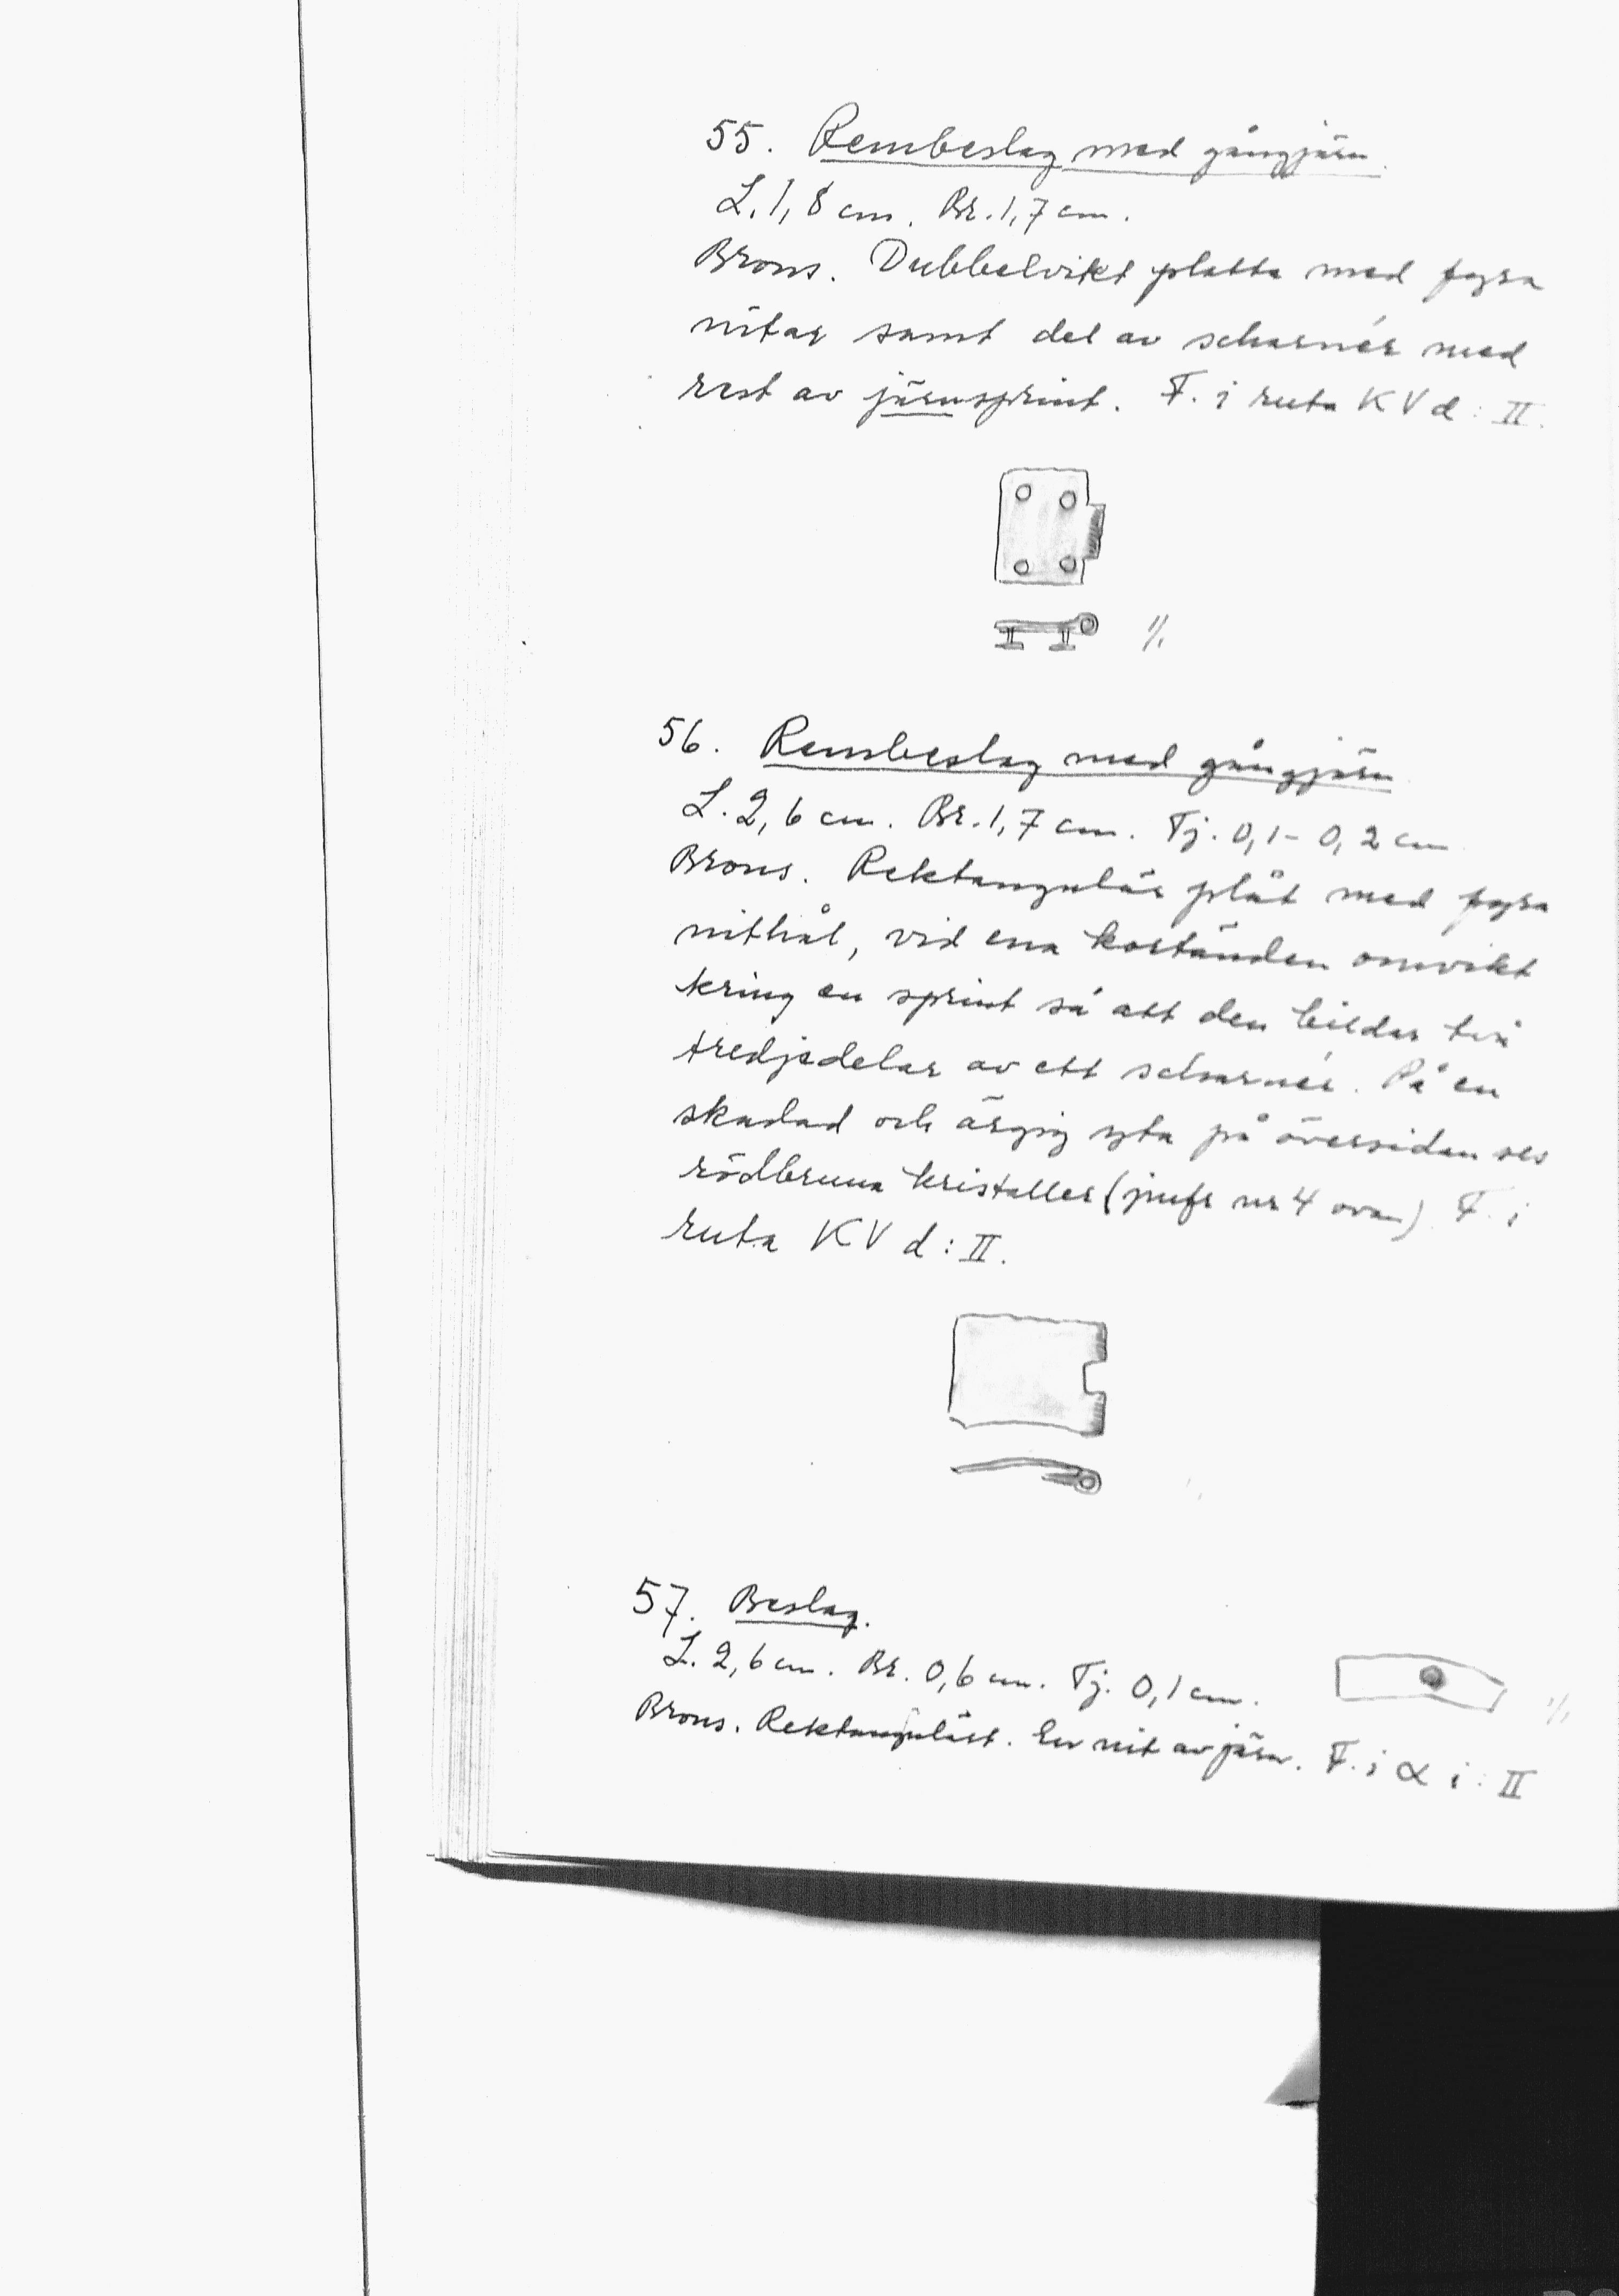 55. Rembeslag med gångjärn.
L. 1,8 cm. Br. 1,7 cm.
Brons. Dubbelvikt platta med fyra
nitar samt del av scharnér med
rest av järnsprint. F. i ruta KV d : II.
1/1
56. Rembeslag med gångjärn
L. 2,6 cm. Br. 1,7 cm. Tj. 0,1 - 0,2 cm
Brons. Rektangulär plåt med fyra
nithål, vid ena kortänden omvikt
kring en sprint så att den bildar två
tredjedelar av ett scharnér. På en
skadad och ärgig yta på översidan ses
rödbruna kristaller (jmfr nr 4 ovan) F. i
ruta KV d : II.
57. Beslag.
L. 2,6 cm. Br. 0,6 cm. Tj. 0,1 cm.
1/1
Brons. Rektangulärt. En nit av järn. F. i α i : II